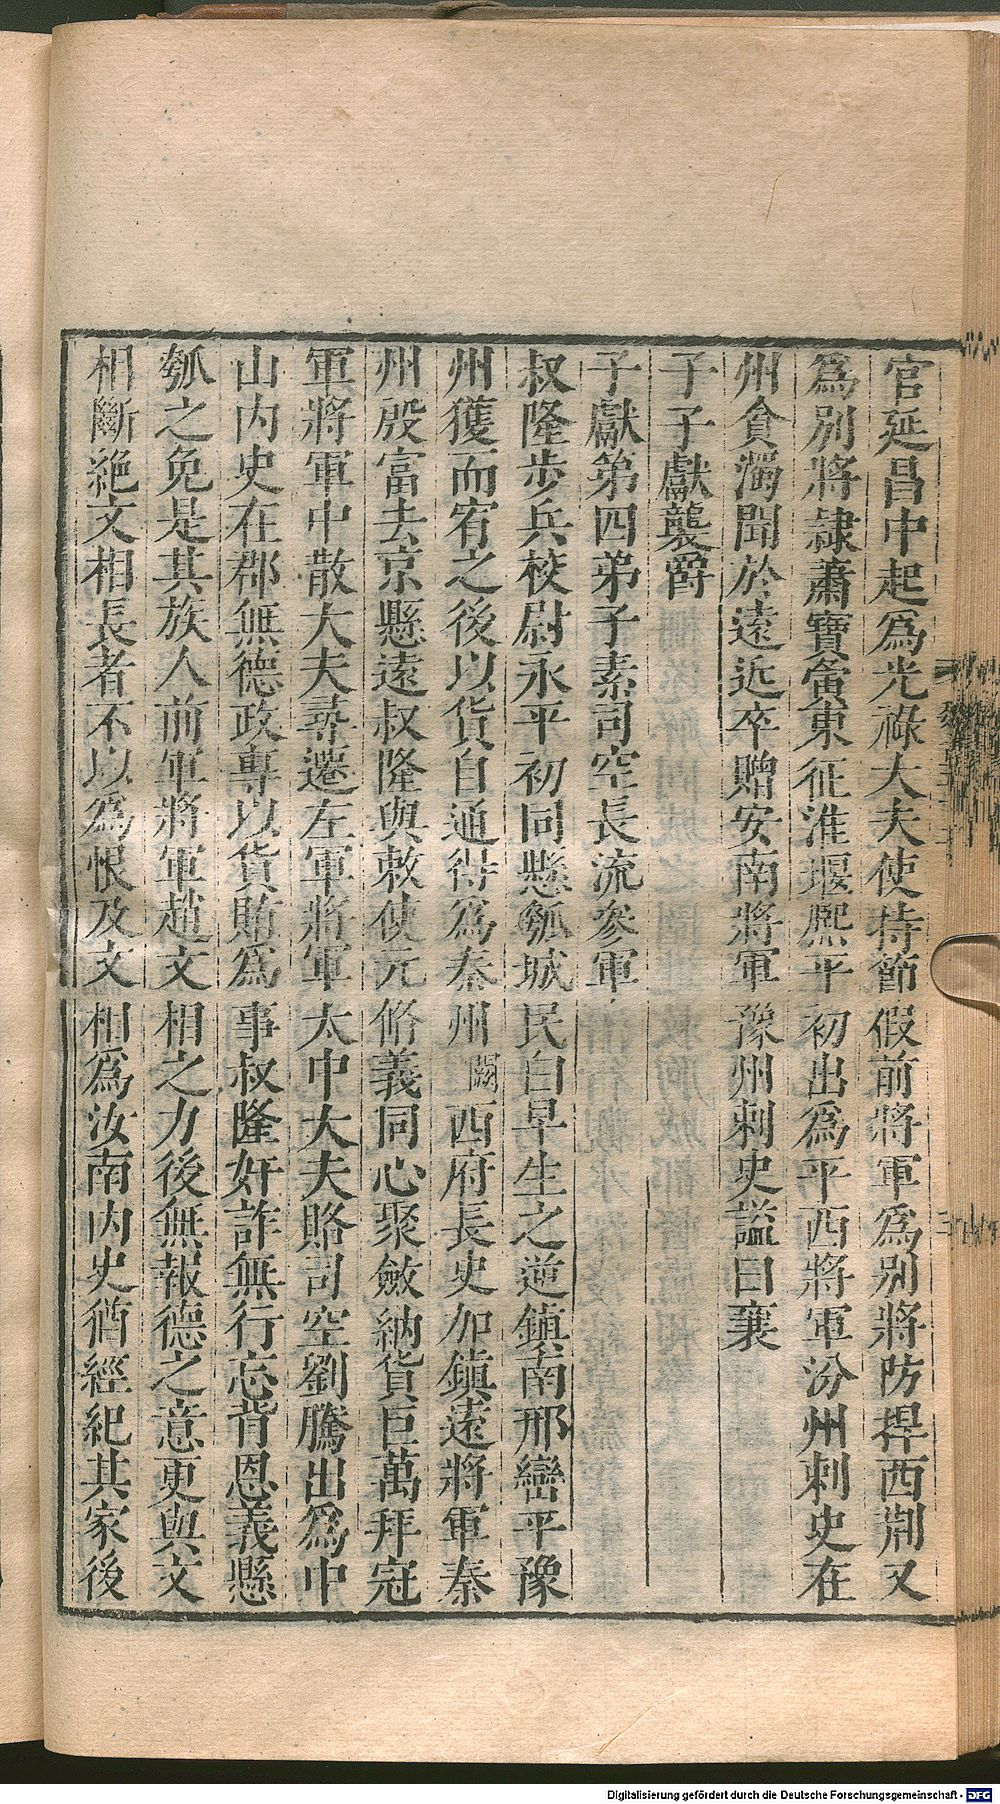 官延昌中起爲光祿大夫使持節假前將軍爲別將防捍西荆又
爲別將隷蕭寶夤東征淮堰熙平初出爲平西將軍汾州刺史在
州貪濁聞於遠近卒贈安南將軍豫州刺史謚曰襄
子子獻襲爵
子獻第四弟子素司空長流參軍
叔隆步兵校尉永平初同懸瓠城民白早生之逆鎮南邢巒平豫
州獲而宥之後以貨自通得爲秦州闕西府長史加鎮遠將軍秦
州殷富去京懸遠叔隆與敕使元脩義同心聚斂納貨巨萬拜冠
軍將軍中散大夫尋遷左軍將軍太中大夫賂司空劉騰出爲中
山內史在郡無德政專以貨賄爲事叔隆奸詐無行忘背恩義懸
瓠之免是其族人前軍將軍趙文相之力後無報德之意更與文
相斷絕文相長者不以爲恨及文相爲汝南內史猶經紀其家後
Digitalisierung gefördert durch die Deutsche Forschungsgemeinschaft - DFG